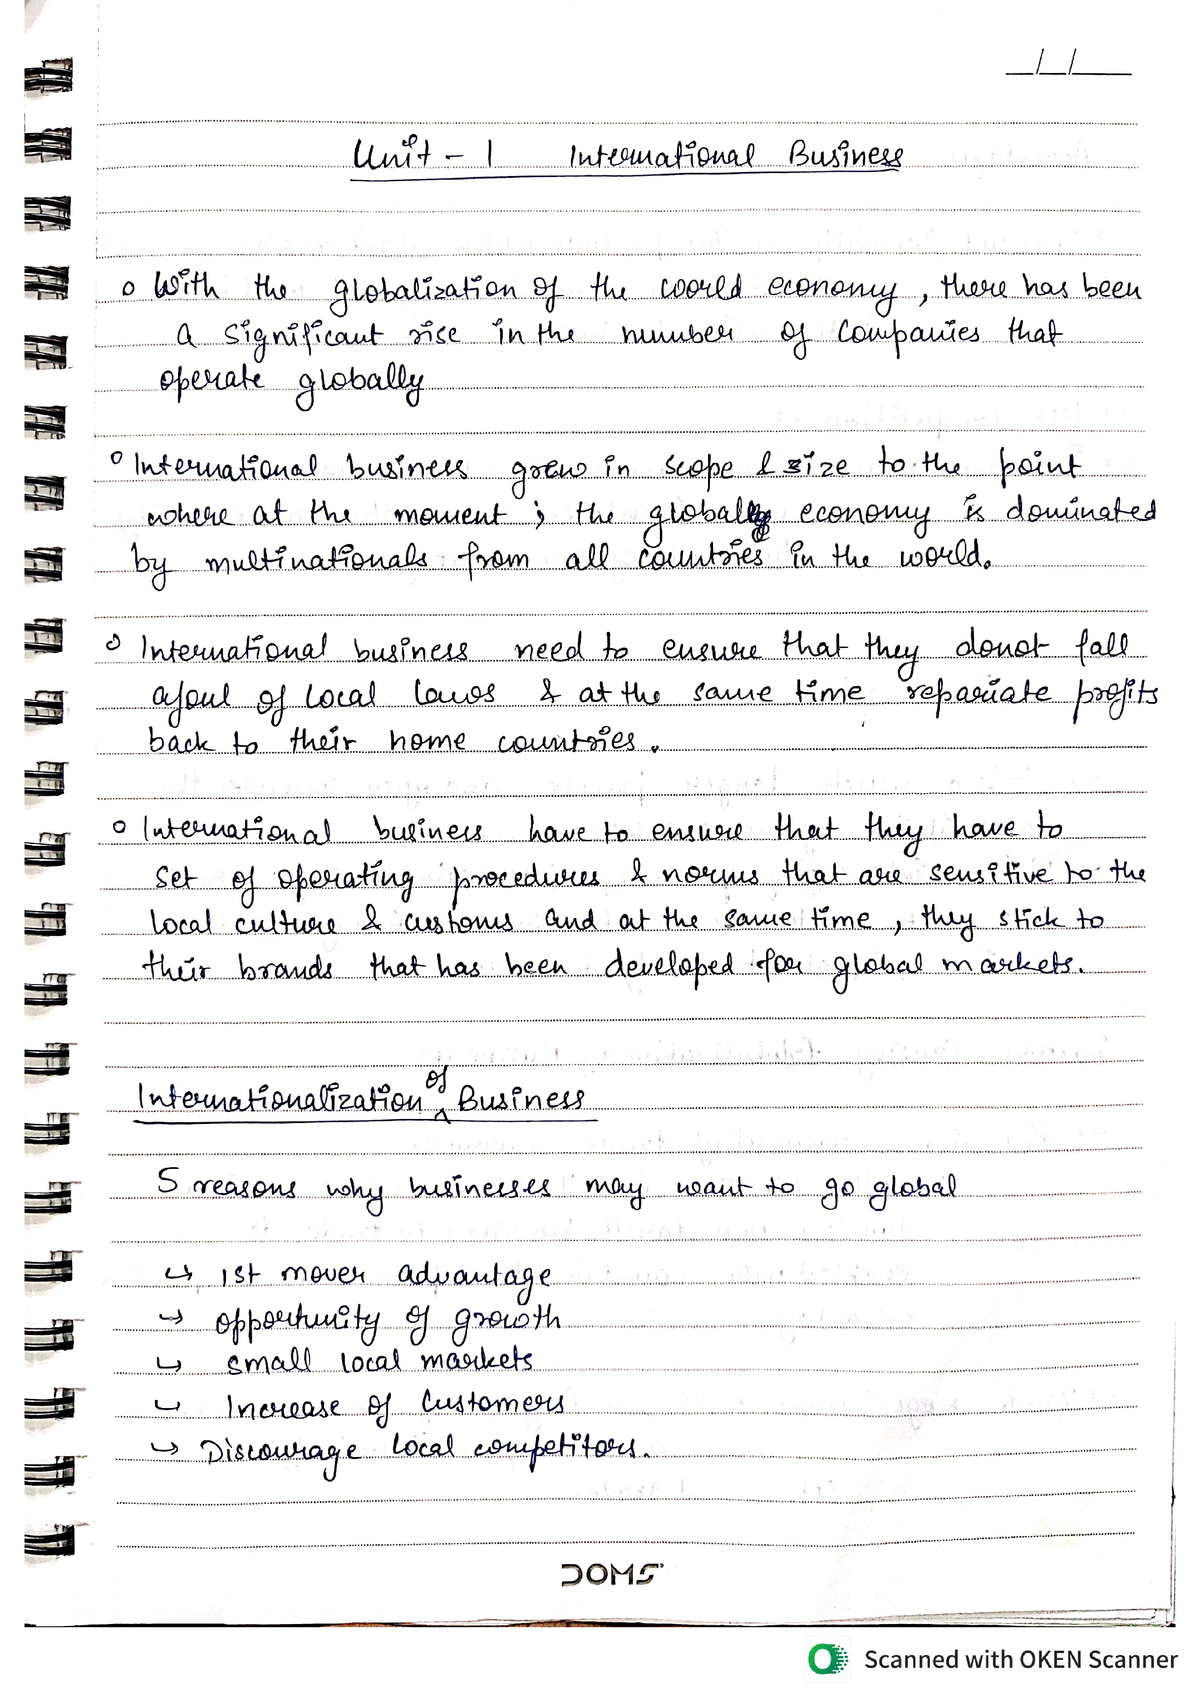 __/__/____
Unit - 1 International Business
o With the globalization of the world economy, there has been
a significant rise in the number of companies that
operate globally
o International business grew in scope & size to the point
where at the moment ; the global economy is dominated
by multinationals from all countries in the world.
o International business need to ensure that they donot fall
afoul of local laws & at the same time repariate profits
back to their home countries.
o International business have to ensure that they have to
set of operating procedures & norms that are sensitive to the
local culture & customs and at the same time, they stick to
their brands that has been developed for global markets.
Internationalization of Business
5 reasons why businesses may want to go global
↳ 1st mover advantage
↳ opportunity of growth
↳ small local markets
↳ Increase of customers
↳ Discourage local competitors.
DOMS
Scanned with OKEN Scanner